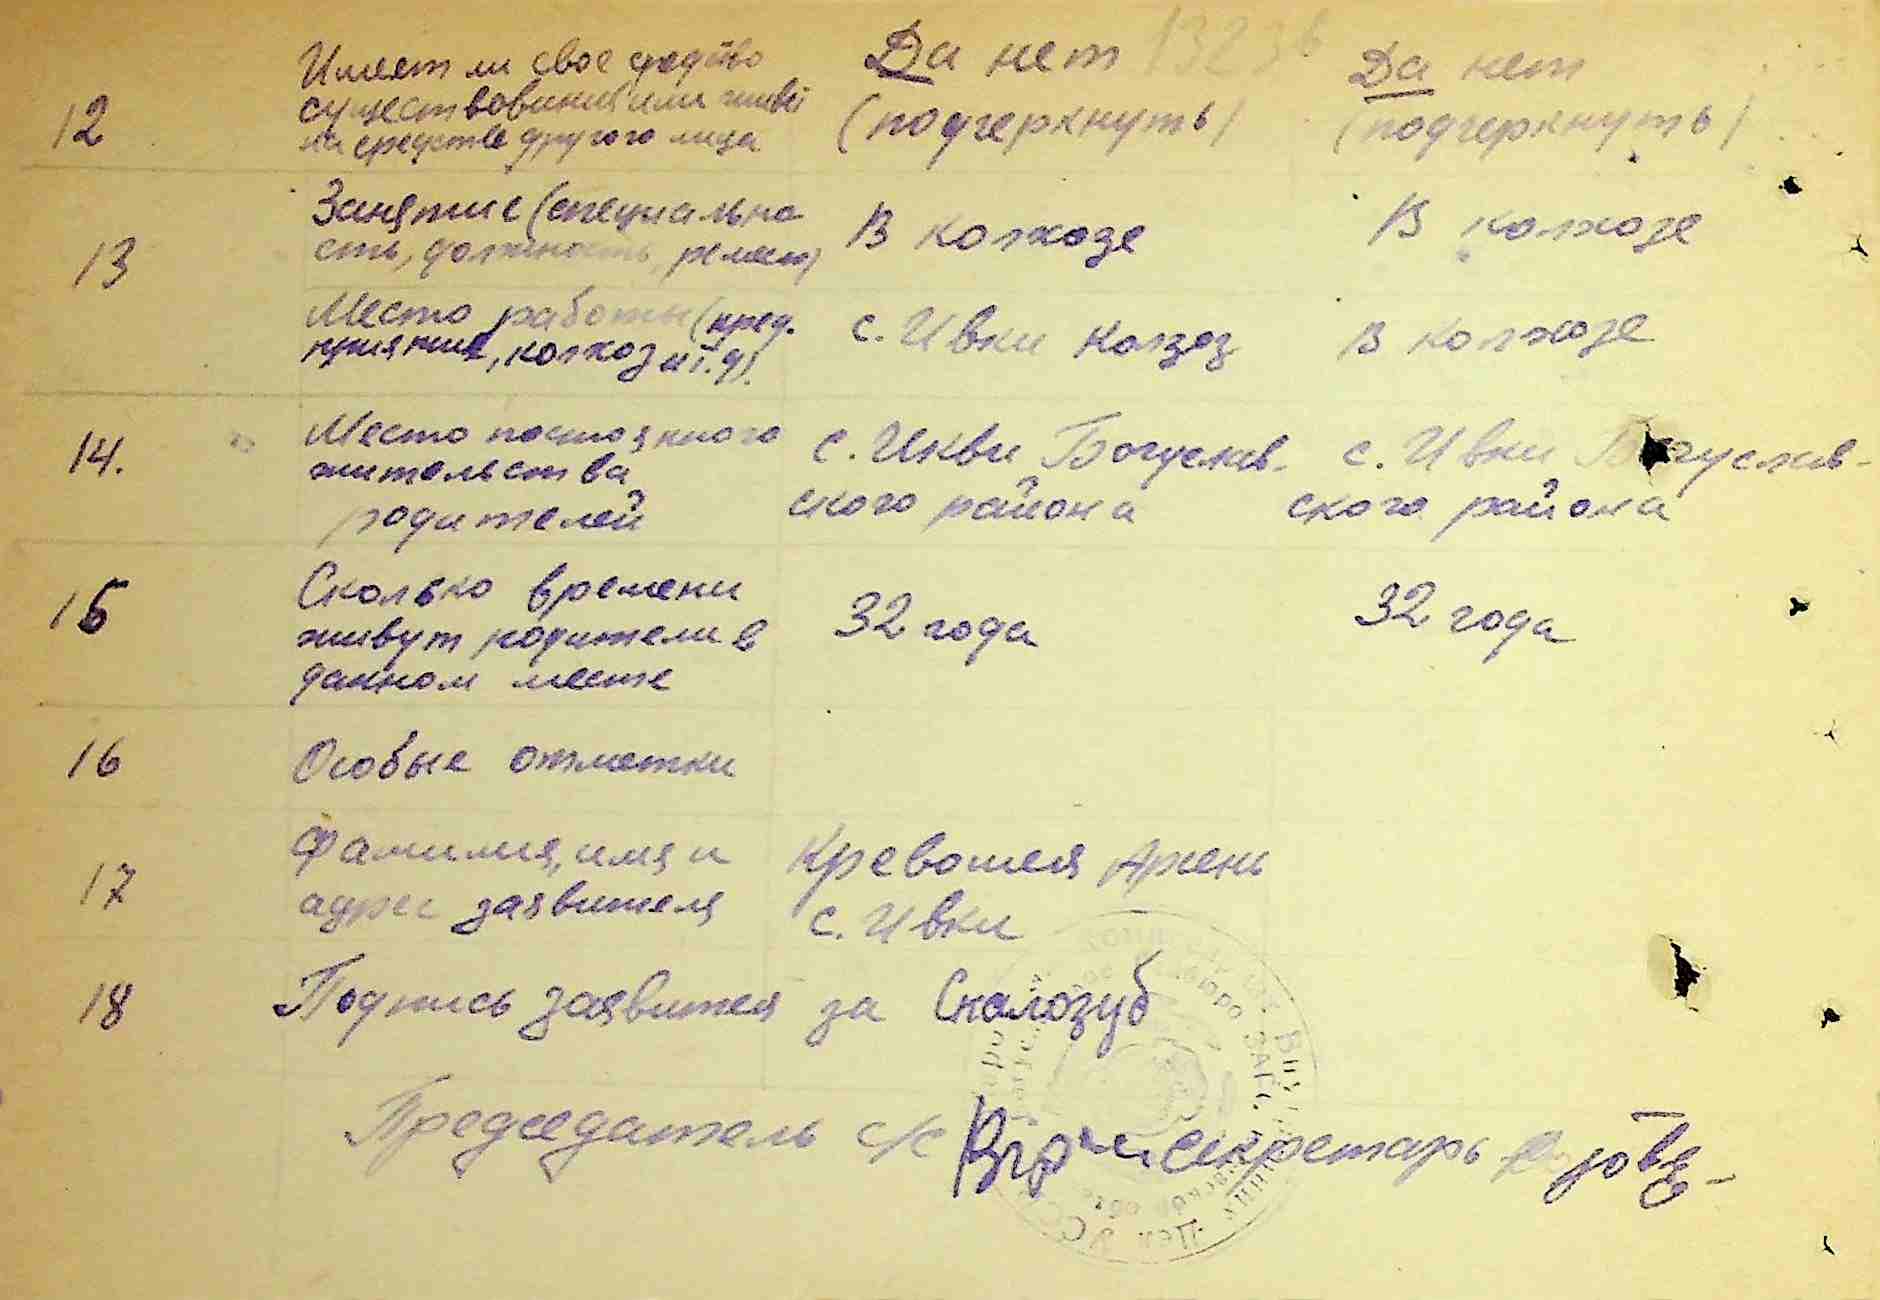 12
Имеет ли свое средство
существования или живё
на средства другого лица
Да нет
(подчеркнуть)
Да нет
(подчеркнуть)
13
Занятие (специально
сть, должность, ремесло)
В колхозе
В колхозе
Место работы (пред.
приятие, колхоз и т.д).
с. Ивки Колхоз
В колхозе
14.
Место постоянного
жительства
родителей
с. Икви Богуслав.
ского района
с. Ивки Богуслав-
ского района
15
Сколько времени
живут родители в
данном месте
32 года
32 года
16
Особые отметки
17
Фамилия, имя и
адрес заявителя
Кревошея
с. Ивки
18
Подпись заявителя за Скалозуб
Председатель с/с
секретарь